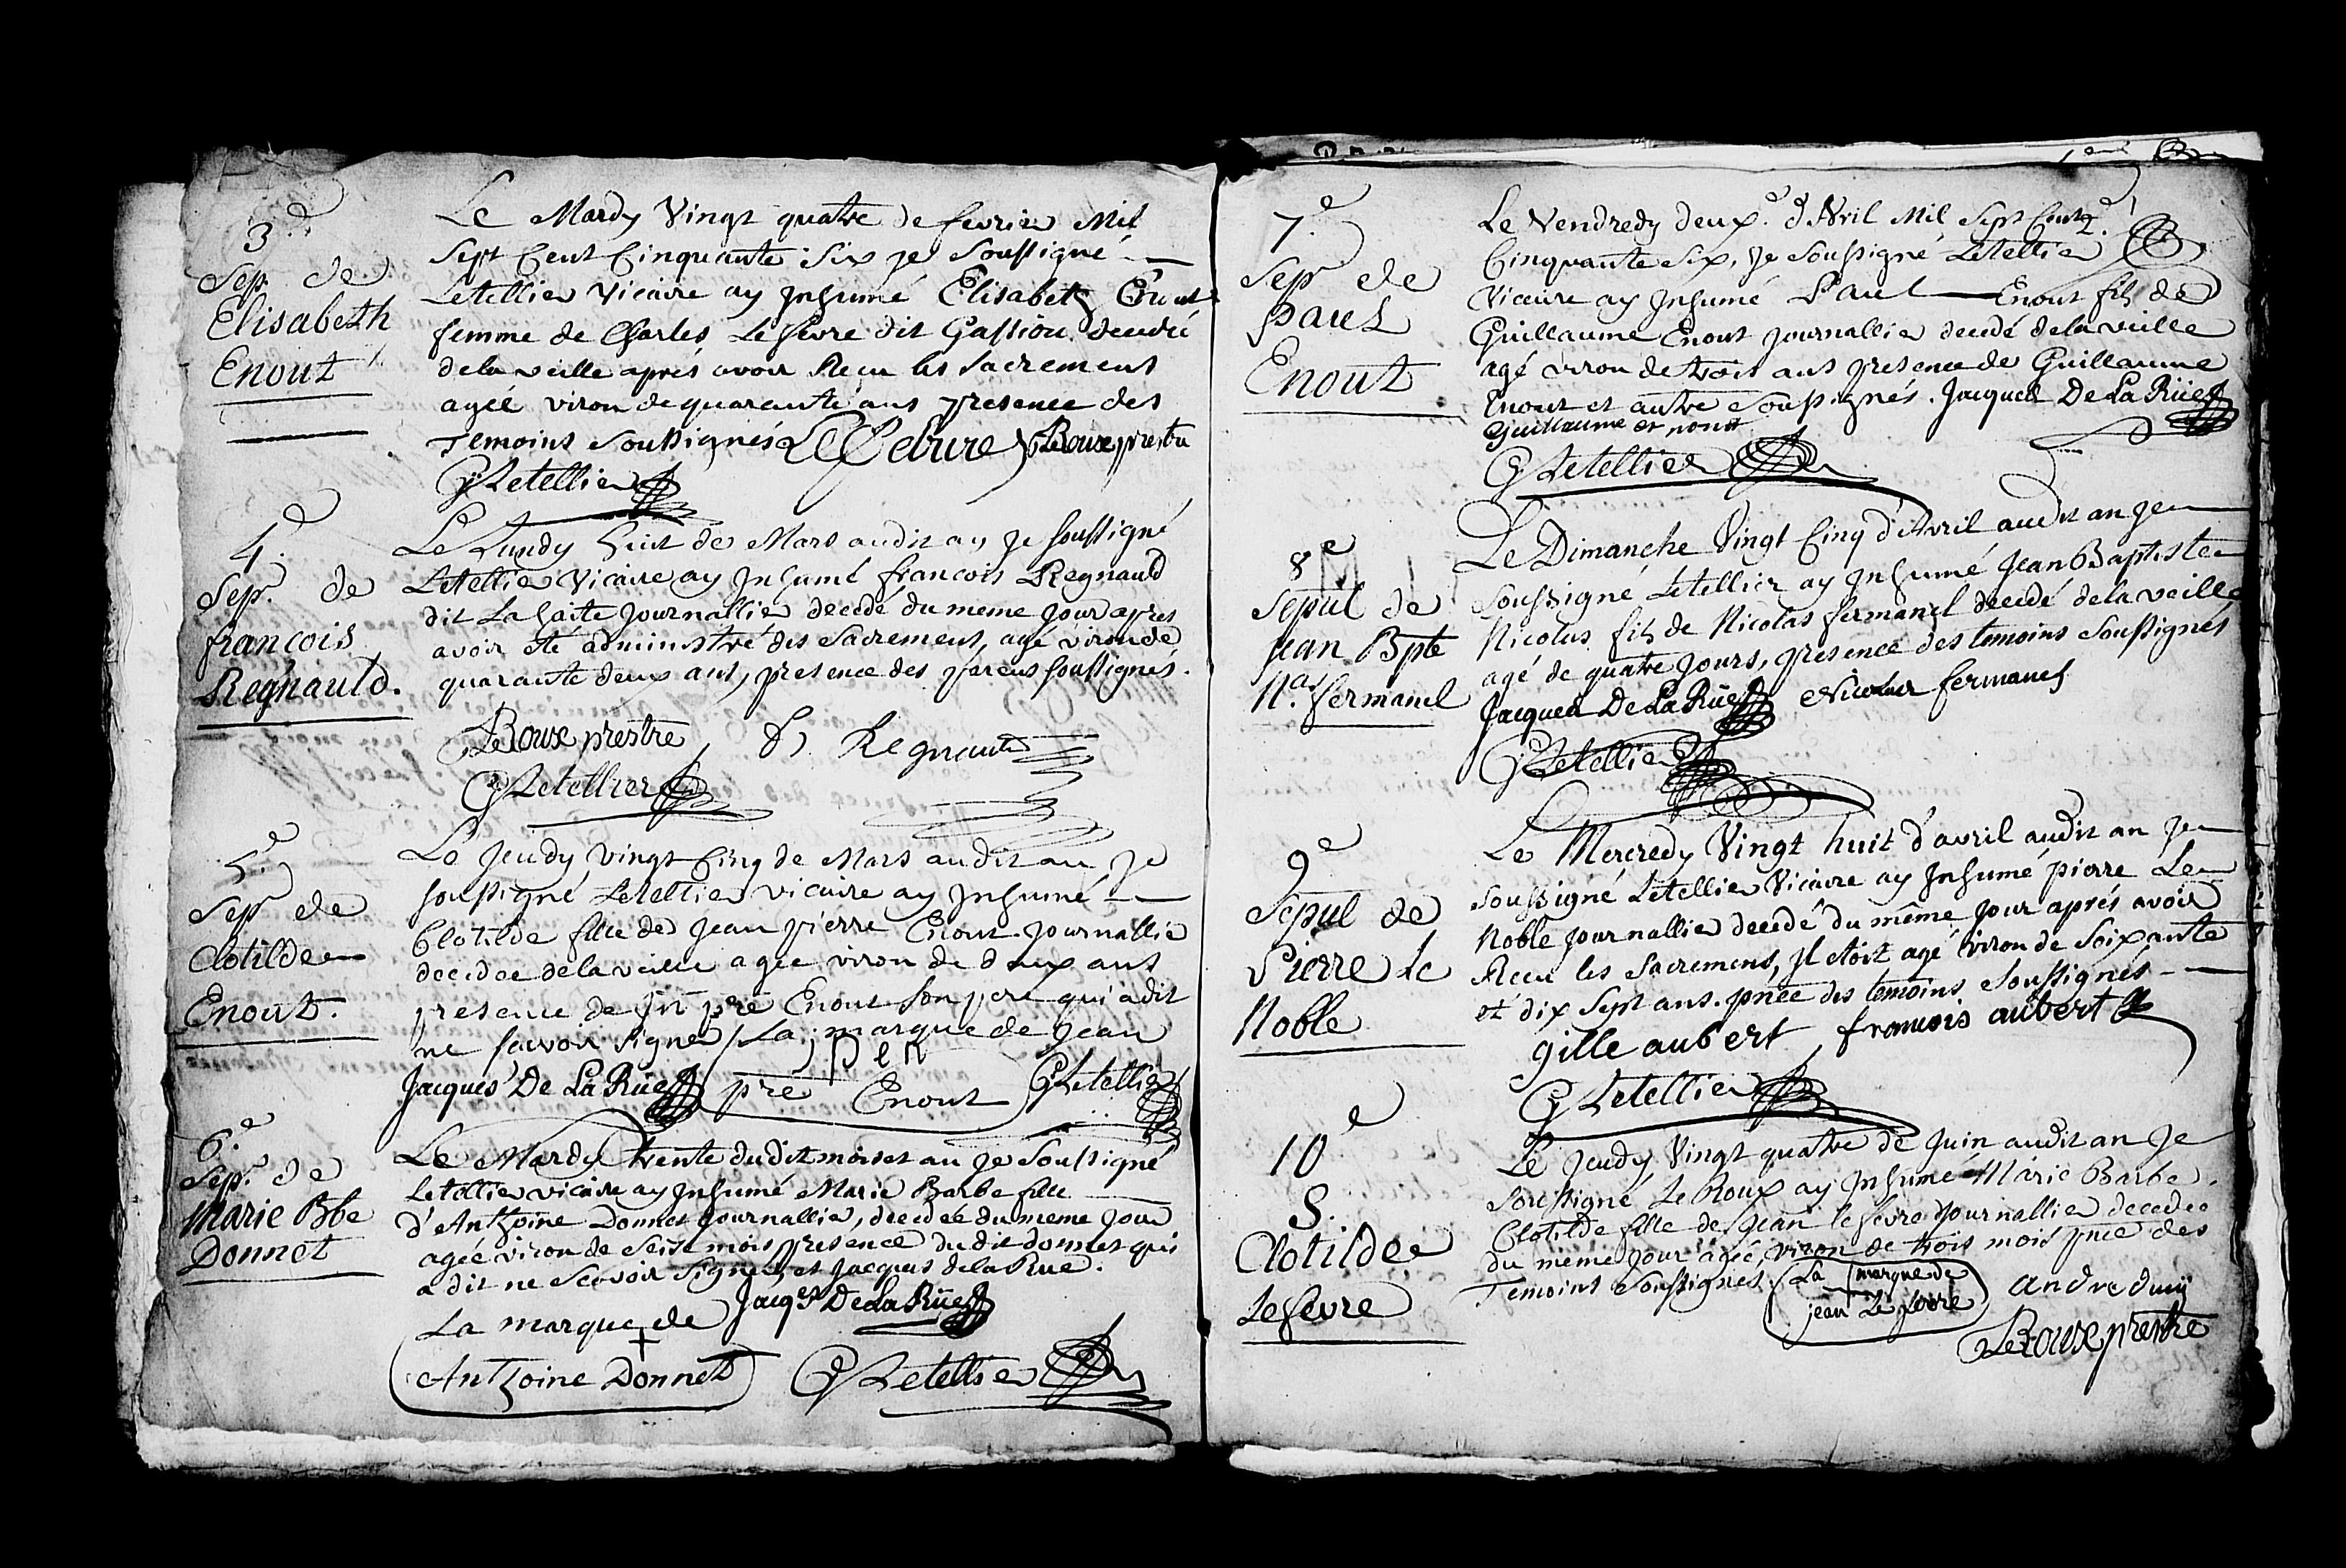 3.e
Sep. de
Elisabeth
Enout
Le Mardy Vingt quatre de fevrier Mil
Sept Cent Cinquante Six je Soussigné
Letellier Vicaire ay Inhumé Elisabeth Enout
femme de Charles Lefevre dit Gassion decedée
dela veille aprés avoir Recu les Sacremens
agée viron de quarante ans presence des
Temoins Soussignés Le febure LeRoux prestre
G Letellier
4.e
Sep. de
francois
Regnauld.
Le Lundy huit de Mars audit an je soussigné
Letellier Vicaire ay Inhumé francois Regnauld
dit La haite Journallier decedé du meme jour apres
avoir eté administré des Sacremens, agé viron de
quarante deux ans, presence des parens soussignés.
LeRoux prestre Regnault
G Letellier
5.e
Sep de
Clotilde
Enout.
Le Jeudy Vingt Cinq de Mars audit an, je
soussigné Letellier vicaire ay Inhumé
Clotilde fille de Jean pierre Enout Journallier
decedee dela veille agée viron de deux ans
presence de Jn pre Enout son pere qui a dit
ne scavoir signer / La marque de Jean
Jacques De La Rüe pre Enout G Letellier
6.e
Sep. de
Marie Bbe
Donnet
Le Mardy trente dudit mois et an je Soussigné
Letellier vicaire ay Inhumé Marie Barbe fille
d'Anthoine Donnet Journallier, decedée du meme jour
agée viron de Seise mois presence du dit donnet qui
a dit ne Scavoir Signer, et Jacques dela Rue.
La marque de Jacqes De La Rüe
+
Anthoine Donnet G Letellier
7.e
Sep de
Paul
Enout
Le Vendredy deux.e d'Avril Mil Sept Cent
Cinquante Six, je Soussigné Letellier
Vicaire ay Inhumé Paul Enout fils de
Guillaume Enout Journallier decedé dela veille
agé viron de trois ans presence de Guillaume
Enout et autre Soussignés. Jacques De La Rüe
Guillaume
G Letellier
8e
Sepul de
Jean Bpte
Nas fermanel
Le Dimanche Vingt Cinq d'Avril audit an je
Soussigné Letellier ay Inhumé Jean Baptiste
Nicolas fils de Nicolas fermanel decedé dela veille
agé de quatre jours, presence des temoins Soussignés
Jacques De La Rüe Nicolas fermanel
G Letellier
9e
Sepul de
Pierre le
Noble
Le Mercredy Vingt huit d'avril audit an je
soussigné Letellier Vicaire ay Inhumé pierre Le
Noble journallier decedé du même jour aprés avoir
Recu les Sacremens, Il etoit agé viron de Soixante
et dix Sept ans. pnce des temoins Soussignés
gille aubert francois aubert
G Letellier
10e
S.
Clotilde
Lefevre
Le Jeudy Vingt quatre de Juin audit an Je
Soussigné Le Roux ay Inhumé Marie Barbe
Clotilde fille de Jean lefevre Journallier decedée
du meme jour agée, viron de trois mois pnce des
Temoins Soussignés. La marque de
jean Le fevre
LeRoux prestre